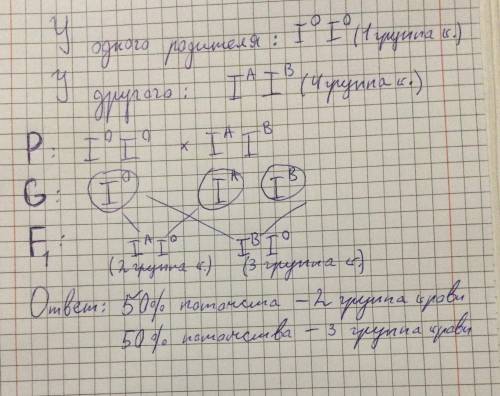 У одного родителя: I^O I^O (1 группа к.)
У другого: I^A I^B (4 группа к.)
P: I^O I^O × I^A I^B
G: I^O I^A I^B
F₁: I^A I^O I^B I^O
(2 группа к.) (3 группа к.)
Ответ: 50% потомства – 2 группа крови
50% потомства – 3 группа крови